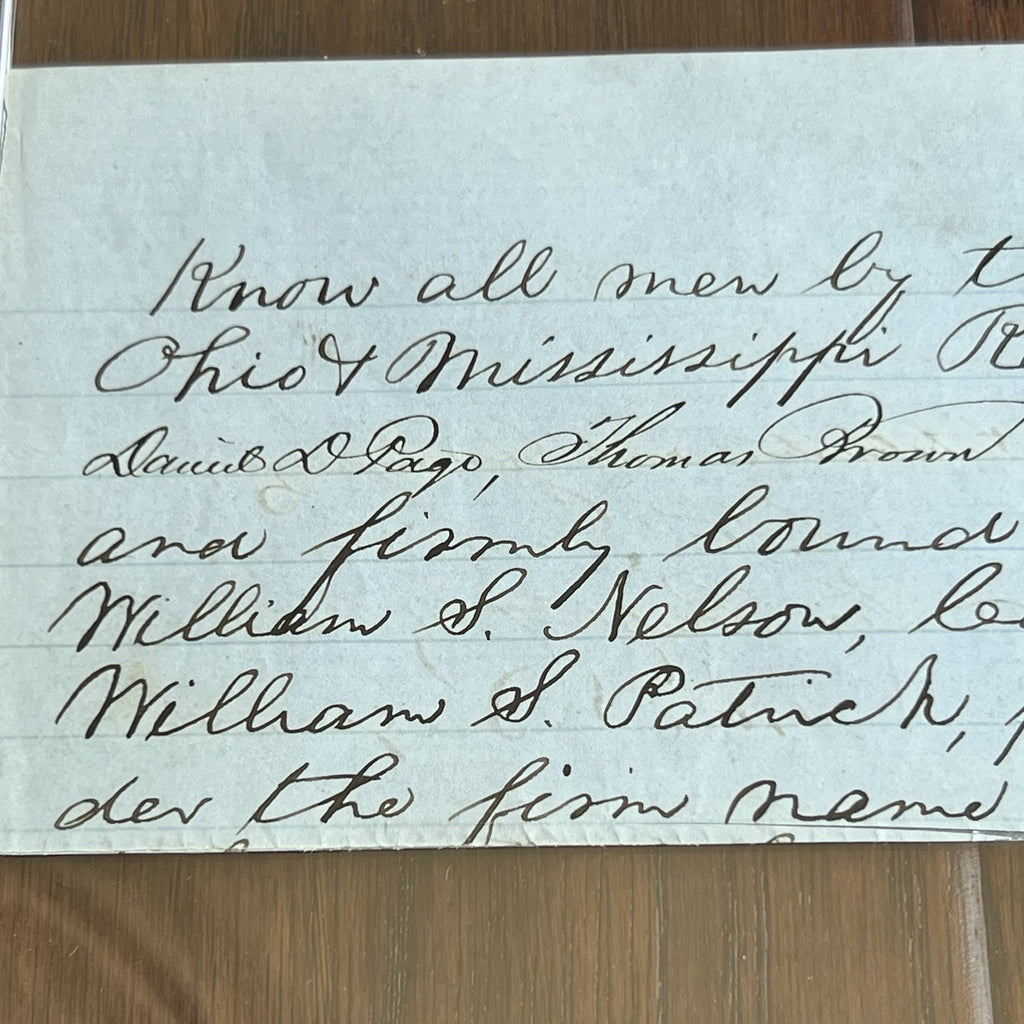 Know all men by t
Ohio & Mississippi R
Daniel D Page, Thomas Brown
and firmly bound
William S. Nelson,
William S. Patrick,
der the firm name